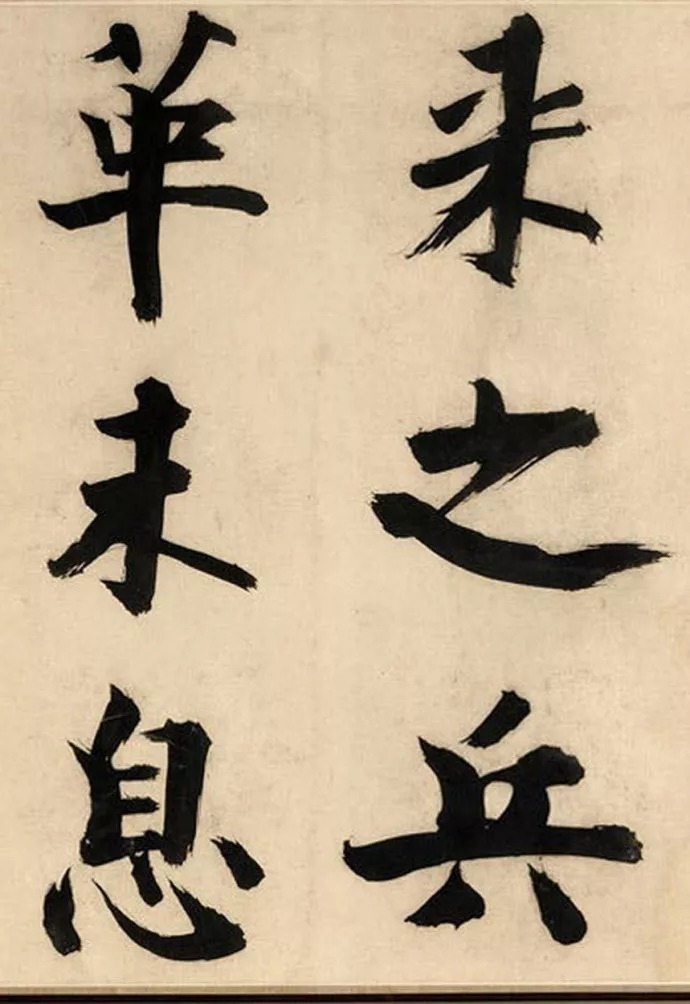 来之兵
革未息